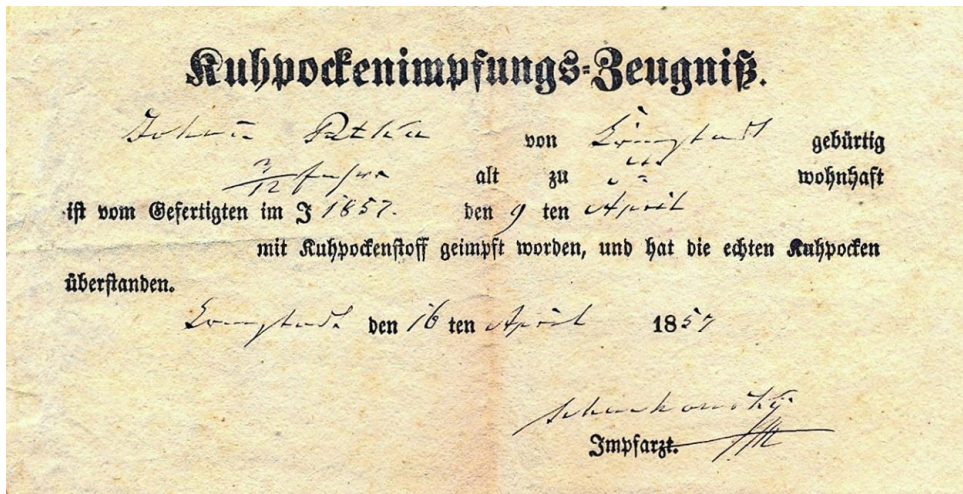 Kuhpockenimpfungs-Zeugniß.
Johann von gebürtig
/12 Jahre alt zu wohnhaft
ist vom Gefertigten im J 1857. den 9 ten April
mit Kuhpockenstoff geimpft worden, und hat die echten Kuhpocken
überstanden.
den 16 ten April 1857
Impfarzt.